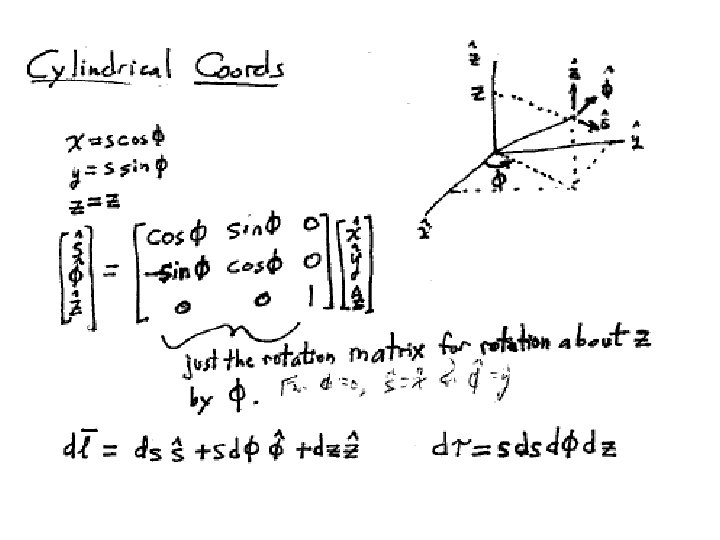 Cylindrical Coords
x = s cos ϕ
y = s sin ϕ
z = z
[ŝ ϕ̂ ẑ] = [cosϕ sinϕ 0; -sinϕ cosϕ 0; 0 0 1] [x̂ ŷ ẑ]
just the rotation matrix for rotation about z
by ϕ. For ϕ=0, ŝ=x̂ & ϕ̂=ŷ
dl̄ = ds ŝ + sdϕ ϕ̂ + dz ẑ
dτ = s ds dϕ dz
ẑ
z
ẑ
ϕ̂
ŝ
ŷ
ϕ
x̂